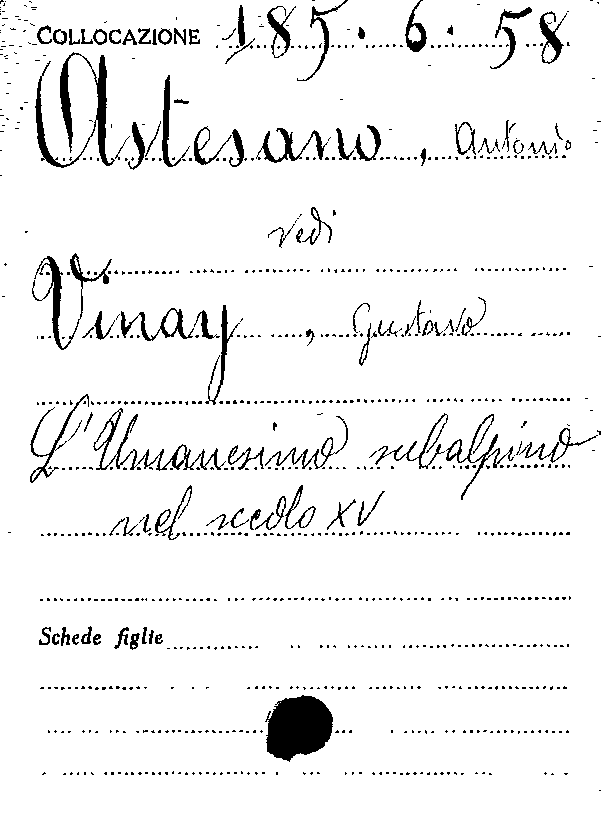 COLLOCAZIONE 185.6.58
Astesano, Antonio
vedi
Vinay, Gustavo
L'Umanesimo subalpino
nel secolo XV
Schede figlie